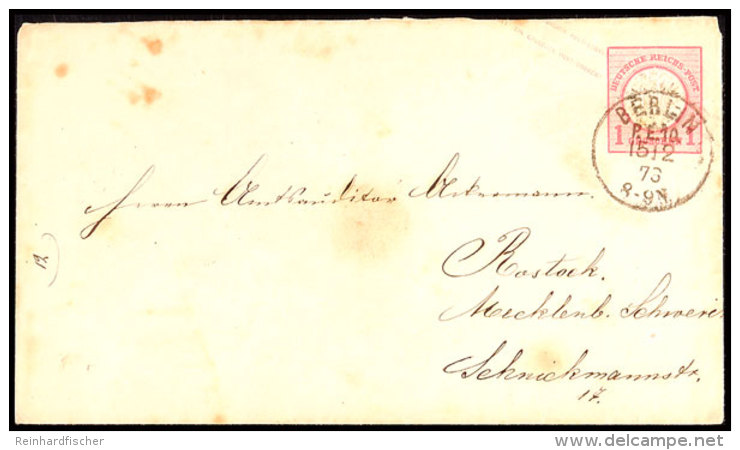 DEUTSCHE REICHS-POST
1 1
BERLIN
P.E.10.
15 12
73
8-9N.
Herrn Amtsauditor Ackermann.
Rostock.
Mecklenb. Schwerin
Schnickmannstr.
17.
19.
Reinhardfischer
delcampe.net